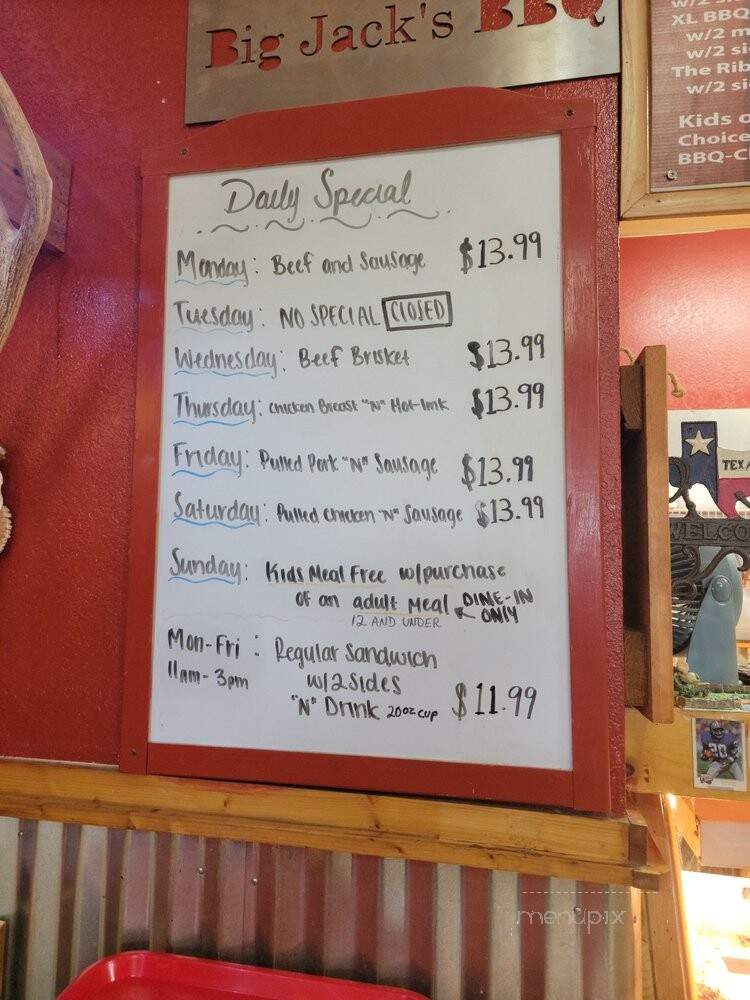 Big Jack's BBQ
Daily Special
Monday: Beef and Sausage $13.99
Tuesday: NO SPECIAL CLOSED
Wednesday: Beef Brisket $13.99
Thursday: Chicken Breast "N" Hot-link $13.99
Friday: Pulled Pork "N" Sausage $13.99
Saturday: Pulled Chicken "N" Sausage $13.99
Sunday: Kids Meal Free w/purchase
of an adult meal DINE-IN ONLY
12 AND UNDER
Mon-Fri: Regular Sandwich
11am-3pm w/2 Sides
"N" Drink 20oz cup $11.99
XL BBQ
w/2 m
w/2 si
The Rib
w/2 si
Kids
Choice
BBQ-C
TEXA
WELCO
20
menupix